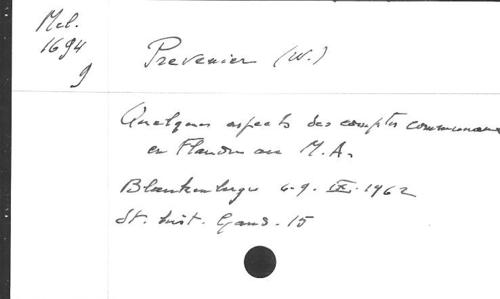 Mel.
1694
9
Prevenier (W.)
Quelques aspects des comptes communaux
en Flandre au M.A.
Blankenberge 6-9. IX. 1962
St. hist. Gand. 15